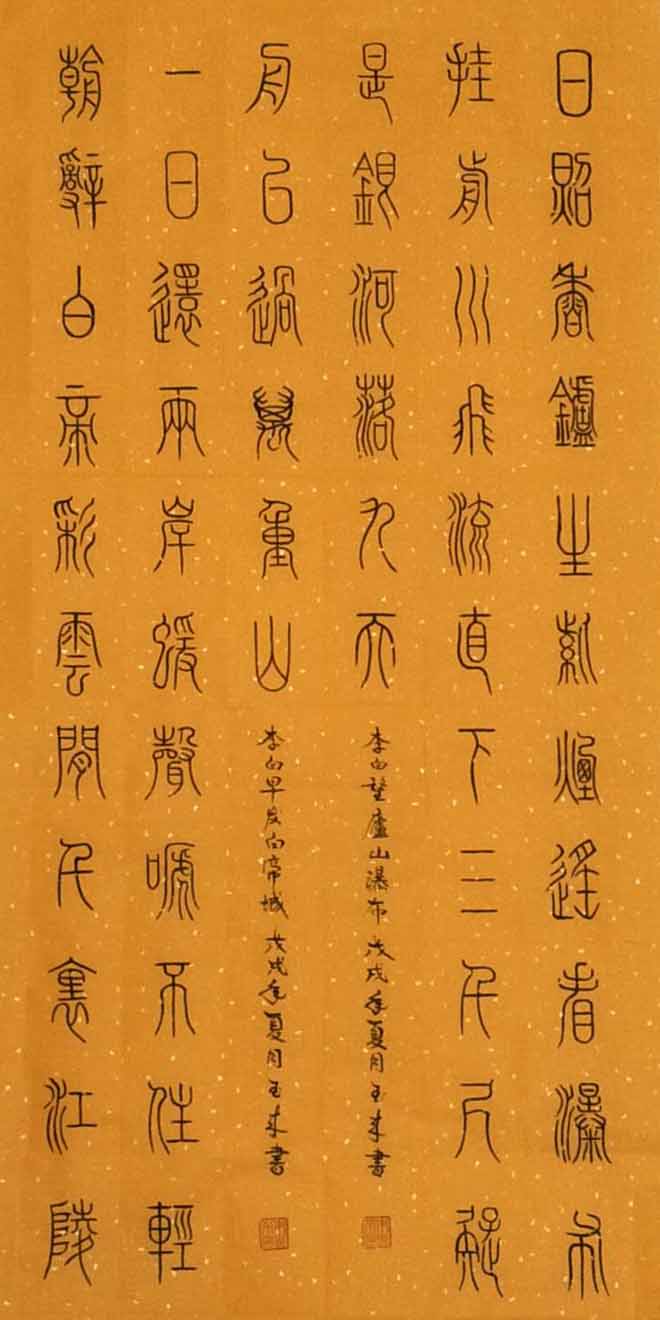 日照香鑪生紫煙遙看瀑布
挂前川飛流直下三千尺疑
是銀河落九天
李白望廬山瀑布 戊戌年夏月玉来書
朝辭白帝彩雲間千裏江陵
一日還兩岸蝯聲嗁不住輕
舟已過萬重山
李白早发白帝城 戊戌年夏月玉来書